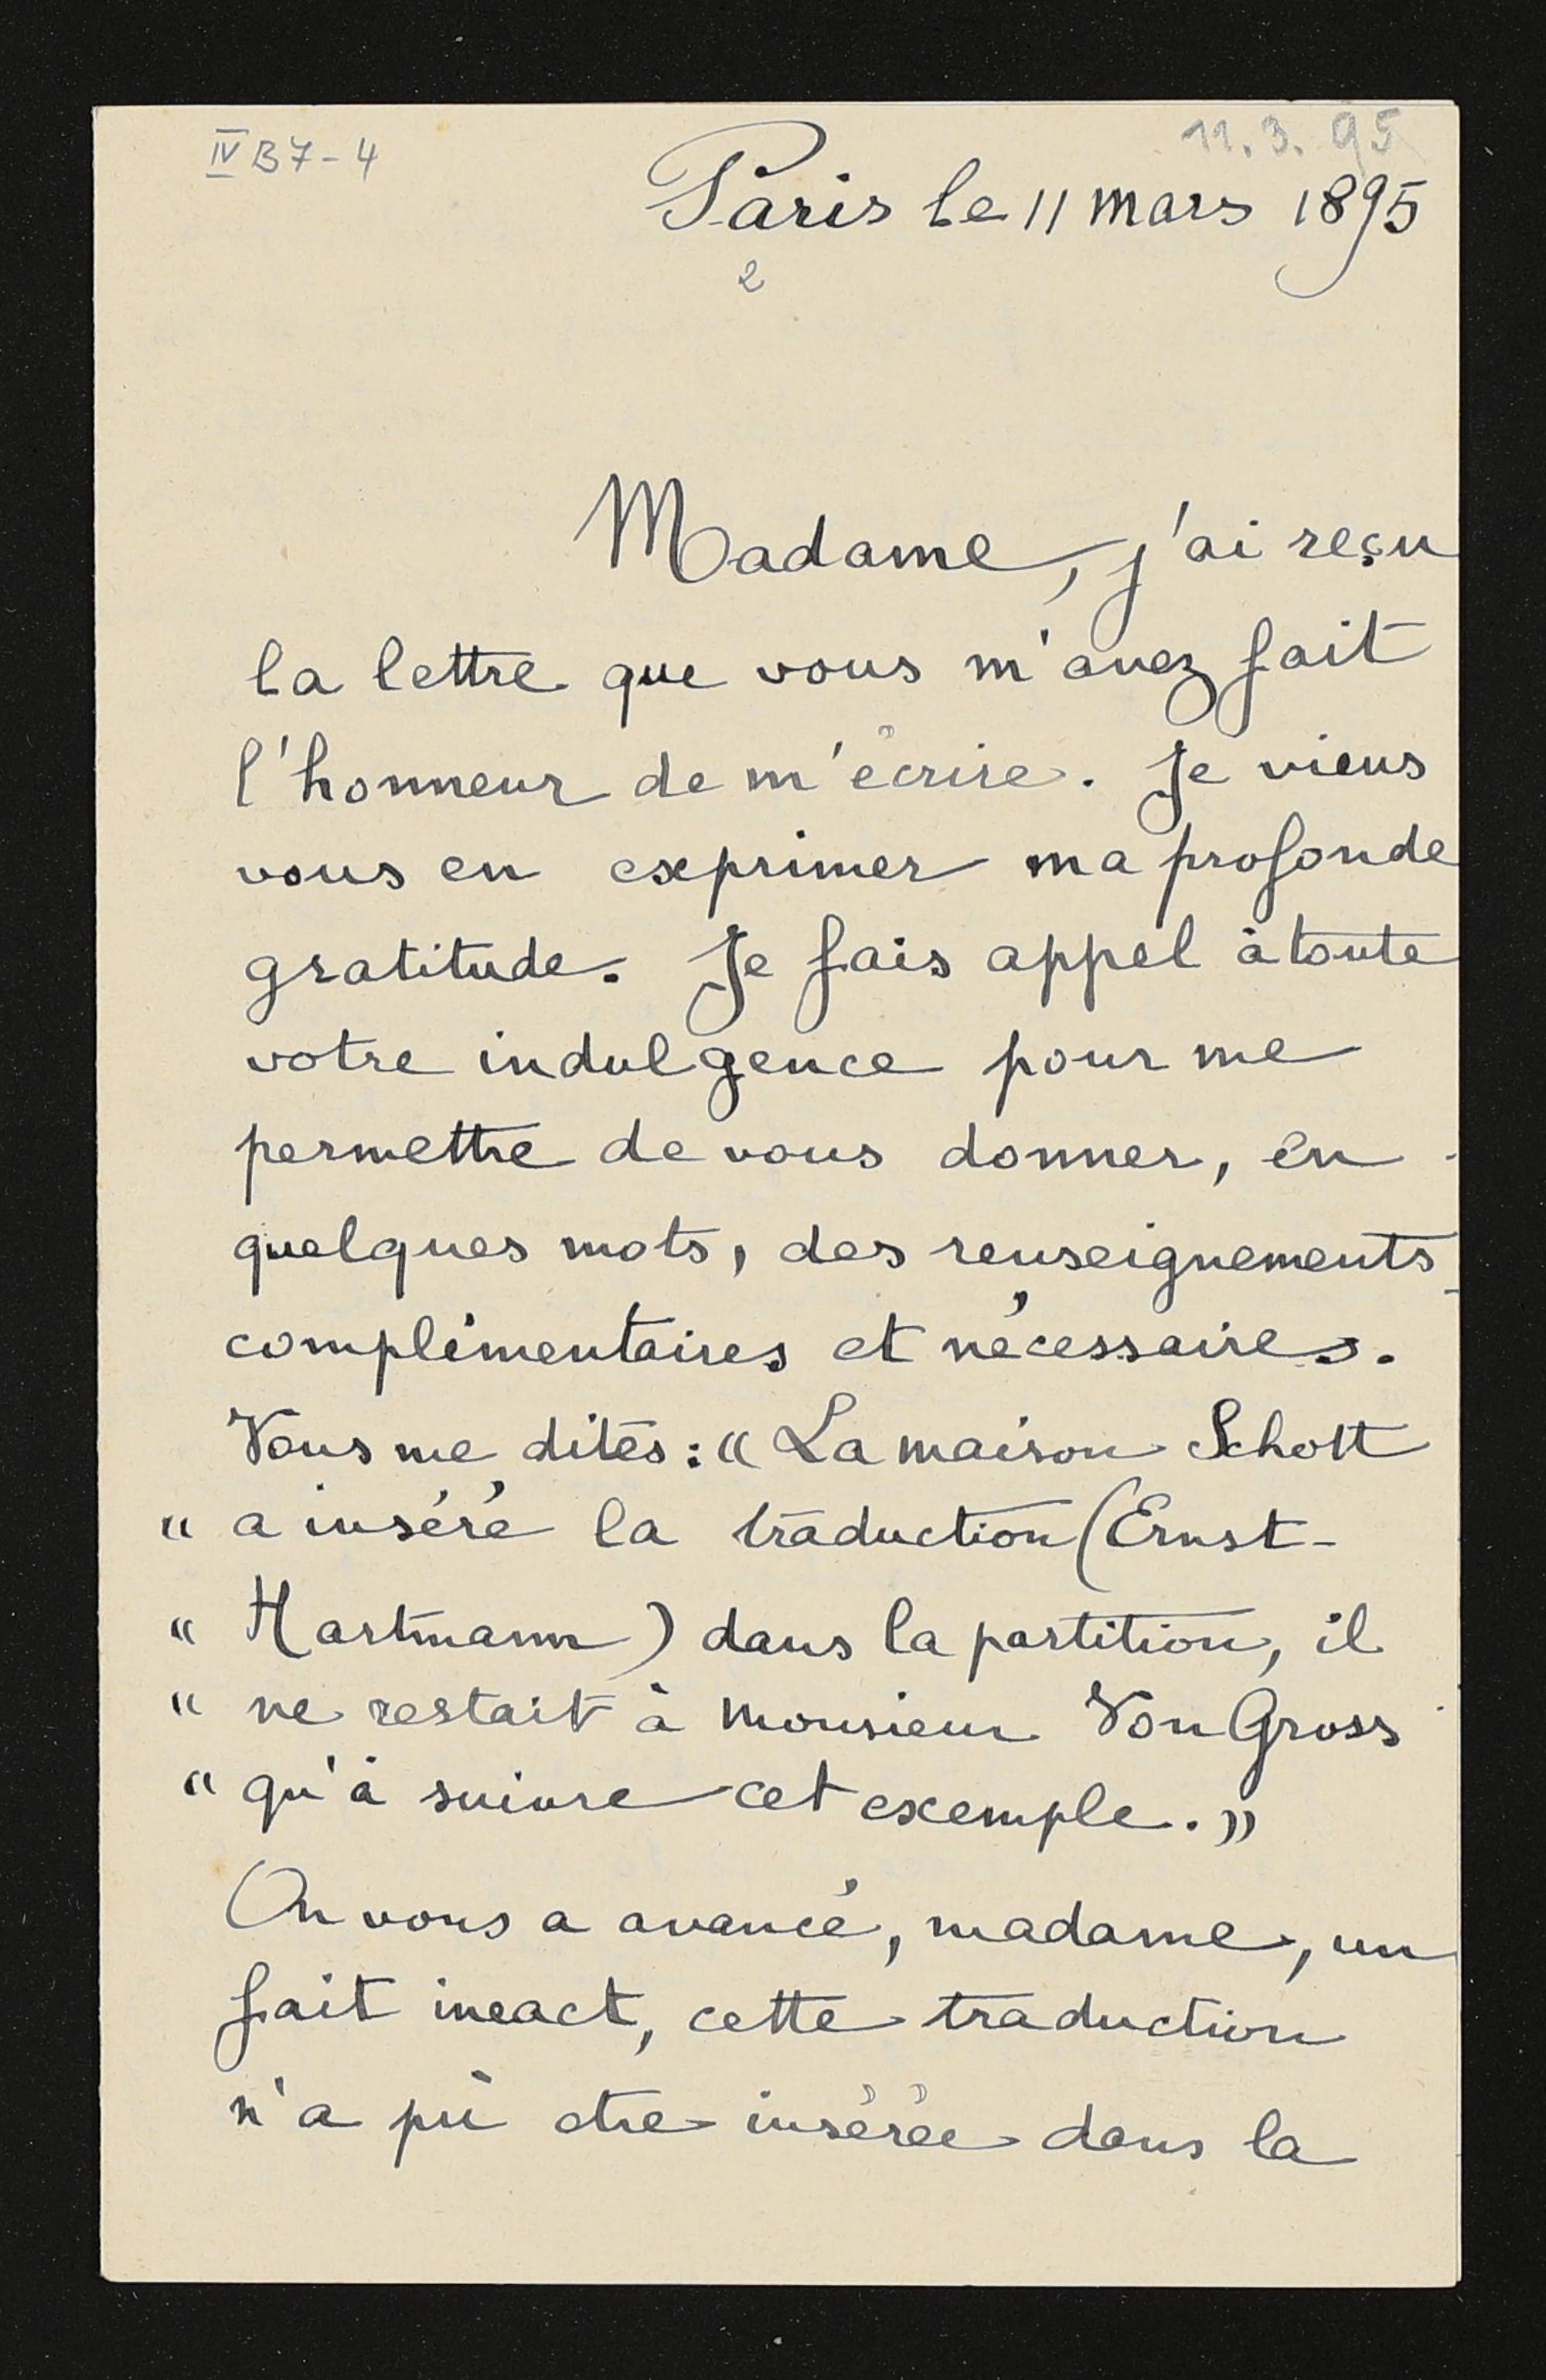 IV B7-4
11.3.95
Paris le 11 mars 1895
2
Madame, j'ai reçu
la lettre que vous m'avez fait
l'honneur de m'écrire. Je viens
vous en exprimer ma profonde
gratitude. Je fais appel à toute
votre indulgence pour me
permettre de vous donner, en
quelques mots, des renseignements
complémentaires et nécessaires.
Vous me dites : « La maison Schott
« a inséré la traduction (Ernst-
« Hartmann) dans la partition, il
« ne restait à Monsieur Von Gross
« qu'à suivre cet exemple. »
On vous a avancé, madame, un
fait ineact, cette traduction
n'a pù etre insérée dans la